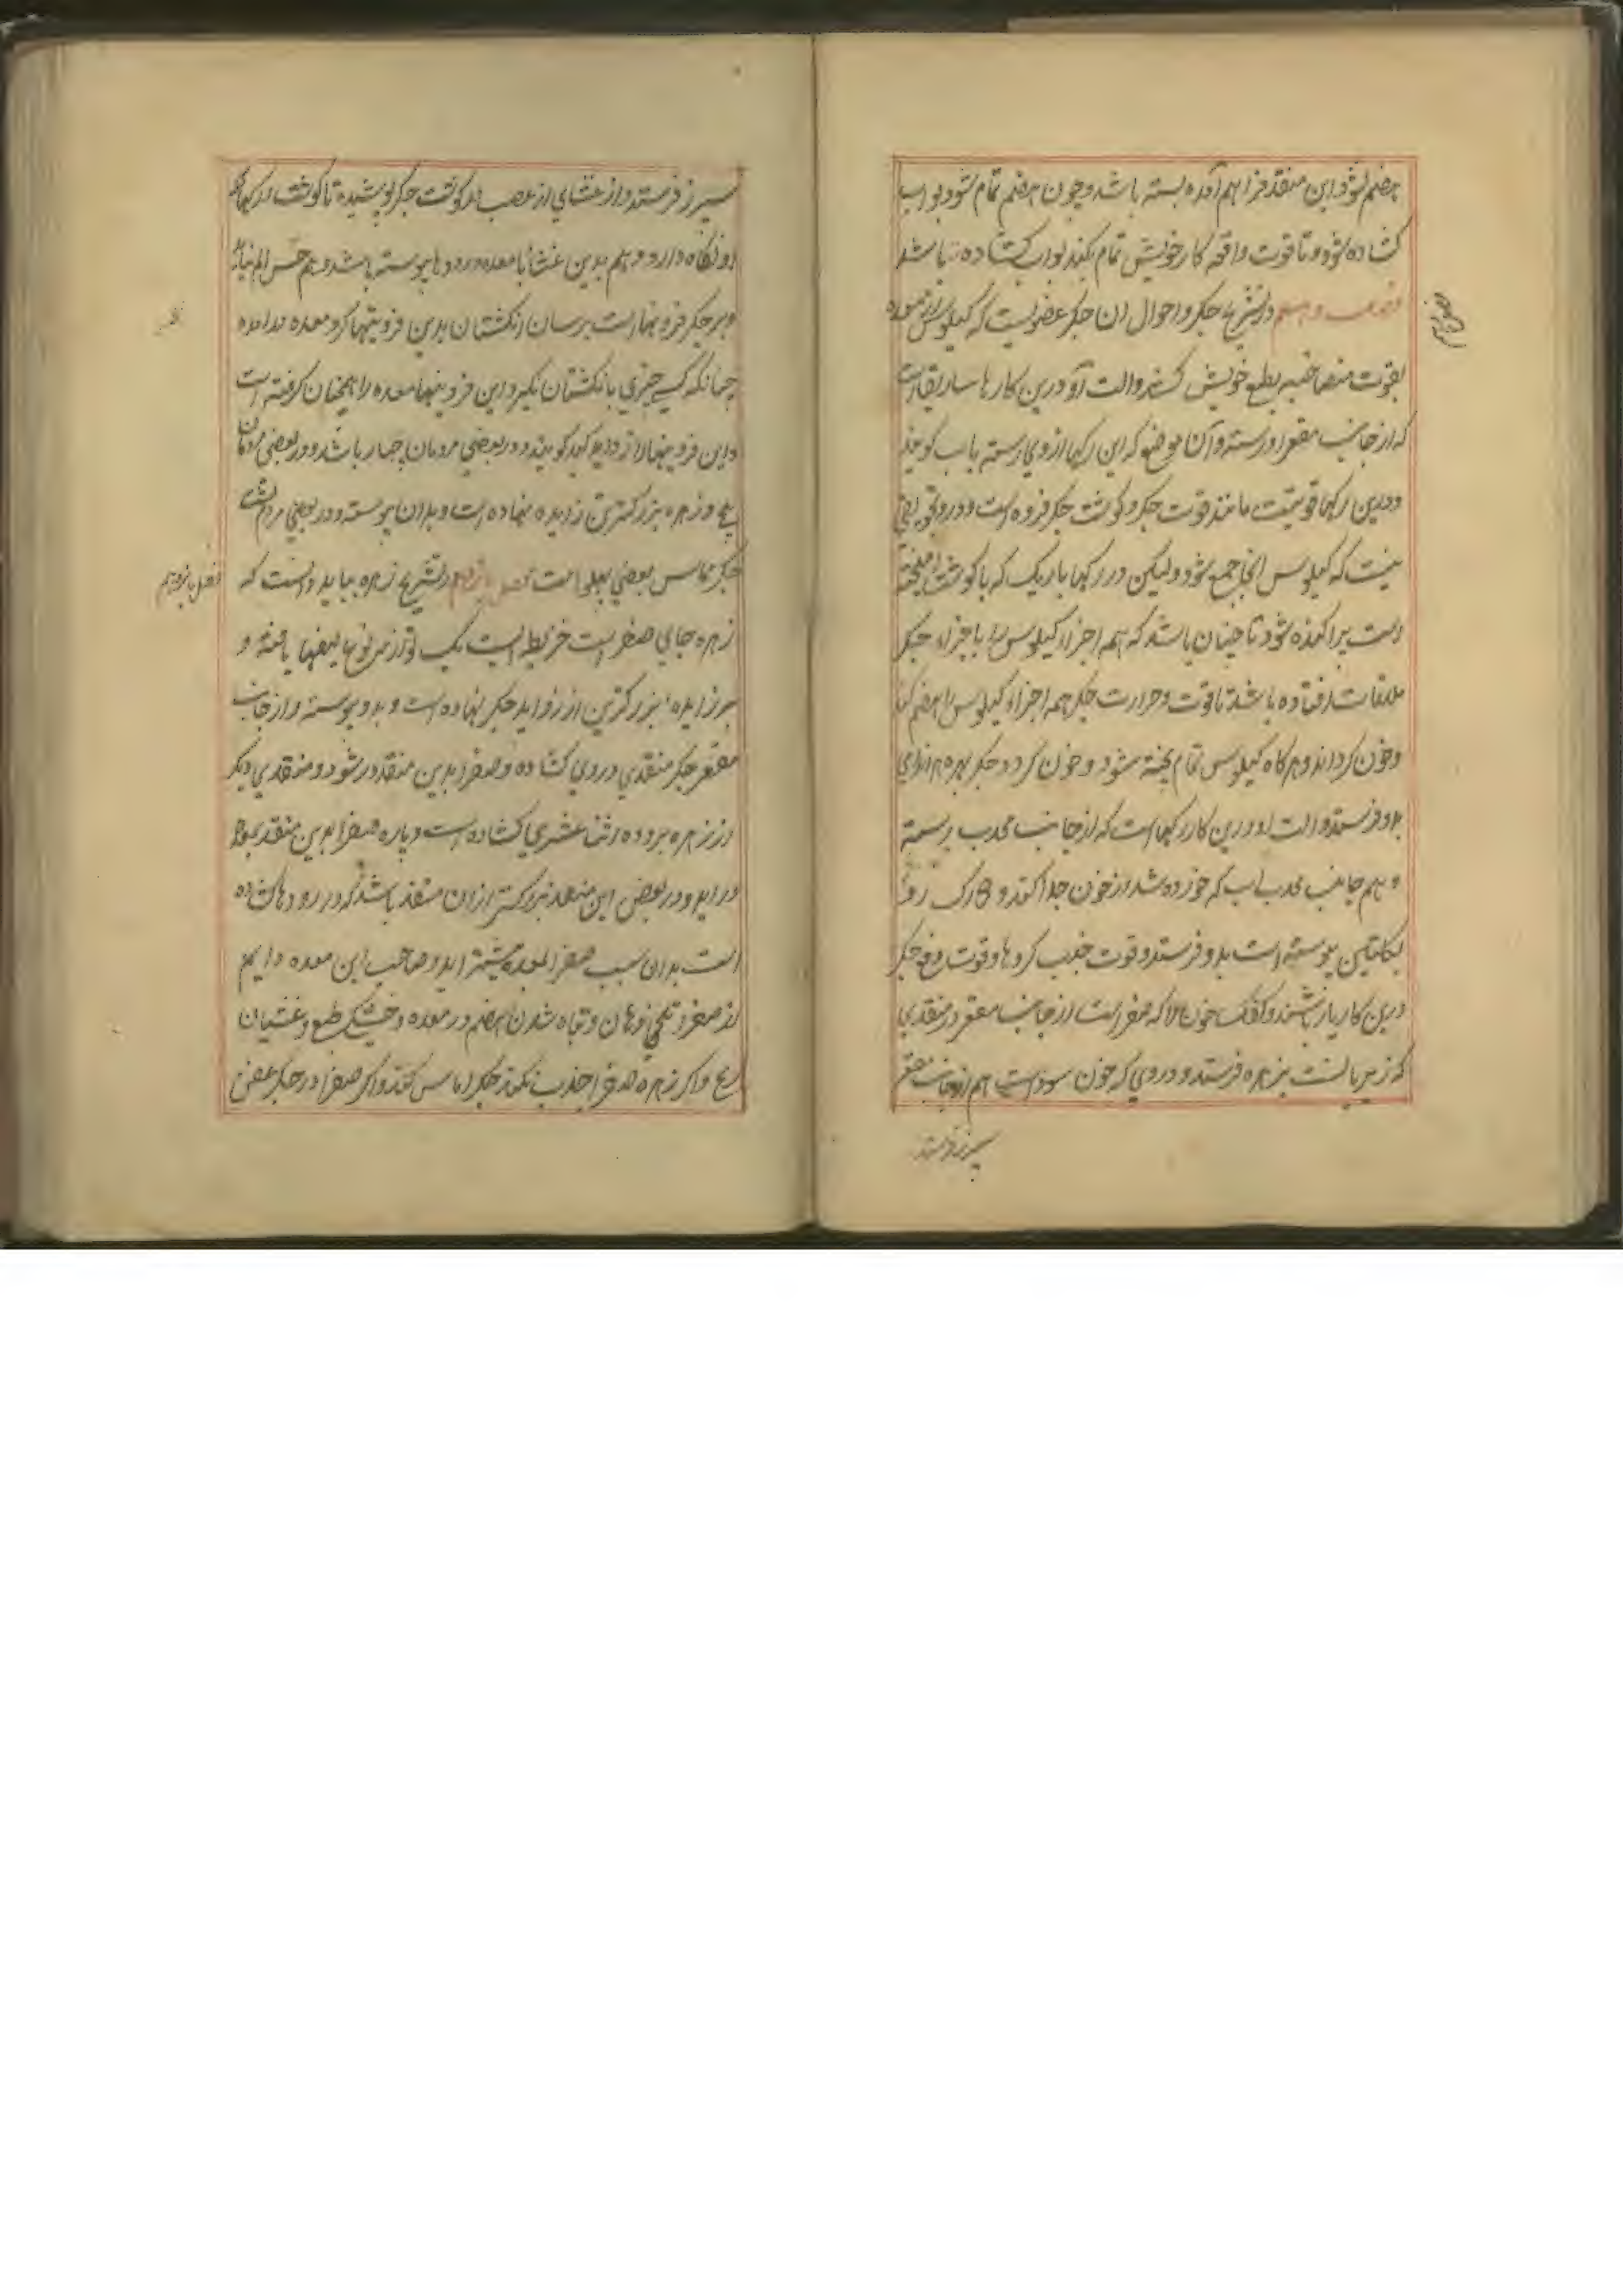 هضم شود و این منفذ فراهم آمده بسته باشد و چون هضم تمام شود بواب
کشاده شود و تا قوت دافعه کار خویش تمام بکند بواب کشاده باشد
در تشریح جکر و احوال ان جکر عضویست که کیلوس از معده
بقوت خویش کشد و الت او درین کار ماساریقا است
که از جانب مقعر او رسته و آن موضع که این رکها از وی رسته باب کویند
و درین رکها قوتیست مانند قوت جکر و کوشت جکر فروه است و درو تجویفی
نیست که کیلوس انجا جمع شود و لیکن در رکها باریک که با کوشت امیخته
است پراکنده شود تا چنان باشد که همه اجزاء کیلوس را با اجزاء جکر
ملاقات افتاده باشد تا قوت و حرارت جکر همه اجزاء کیلوس را هضم کند
و خون کرداند و هرکاه کیلوس تمام پخته شود و خون کردد جکر بهره هر اندامی
بدو فرستد و الت او درین کار رکهاست که از جانب محدب رسته
و هم جانب محدب آب که خورده شد از خون جدا کند و رک
بکلیتین پیوسته است بدو فرستد و قوت جذب کردها و قوت دفع جکر
درین کار یار باشند و کفک خون را که صفراست از جانب مقعر در منفذی
که زیر باب است بزهره فرستد و دردی که خون سوداست هم از جانب مقعر
سپرز فرستد
سپرز فرستد و از غشای از عصب کوشت جکر پوشیده تا کوشت و رکها
او نکاه دارد و هم بدین غشا با معده و رودها پیوسته باشد و هم حس الم
و بر جکر فزونیهاست برسان انکشتان بدین فزونیها کرد معده درامده
چنانکه کسی چیزی بانکشتان بکیرد این فزونیها معده را همچنان کرفته است
و این فزونیها را زواید کبد کویند و در بعضی مردمان چهار باشد و در بعضی مردمان
پنج و زهره بر بزرکترین زایده نهاده است و بدان پیوسته و در بعضی مردم
جکر مماس بعضی پهلو است فصل یازدهم در تشریح زهره بباید دانست که
زهره جای صفراست خریطه ایست یک تو از نوعها لیفها بافته و
بر زایده بزرکترین از زواید جکر نهاده است و بدو پیوسته و از جانب
مقعر جکر منفذی در وی کشاده و صفرا بدین منفذ در شود و منفذی دیکر
از زهره بروده اثنا عشری کشاده است و پاره صفرا بدین منفذ بروده
دراید و در بعضی این منفذ بزرکتر ازان منفذ باشد که در رودها کشاده
است بدان سبب صفرا بمعده بیشتر اید و صاحب این معده دایم
از صفرا و تلخی دهان و تباه شدن هضم در معده و خشکی طبع و غثیان
رنج و اکر زهره صفرا جذب نکند جکر اماس کند و اکر صفرا در جکر عفن
فصل یازدهم